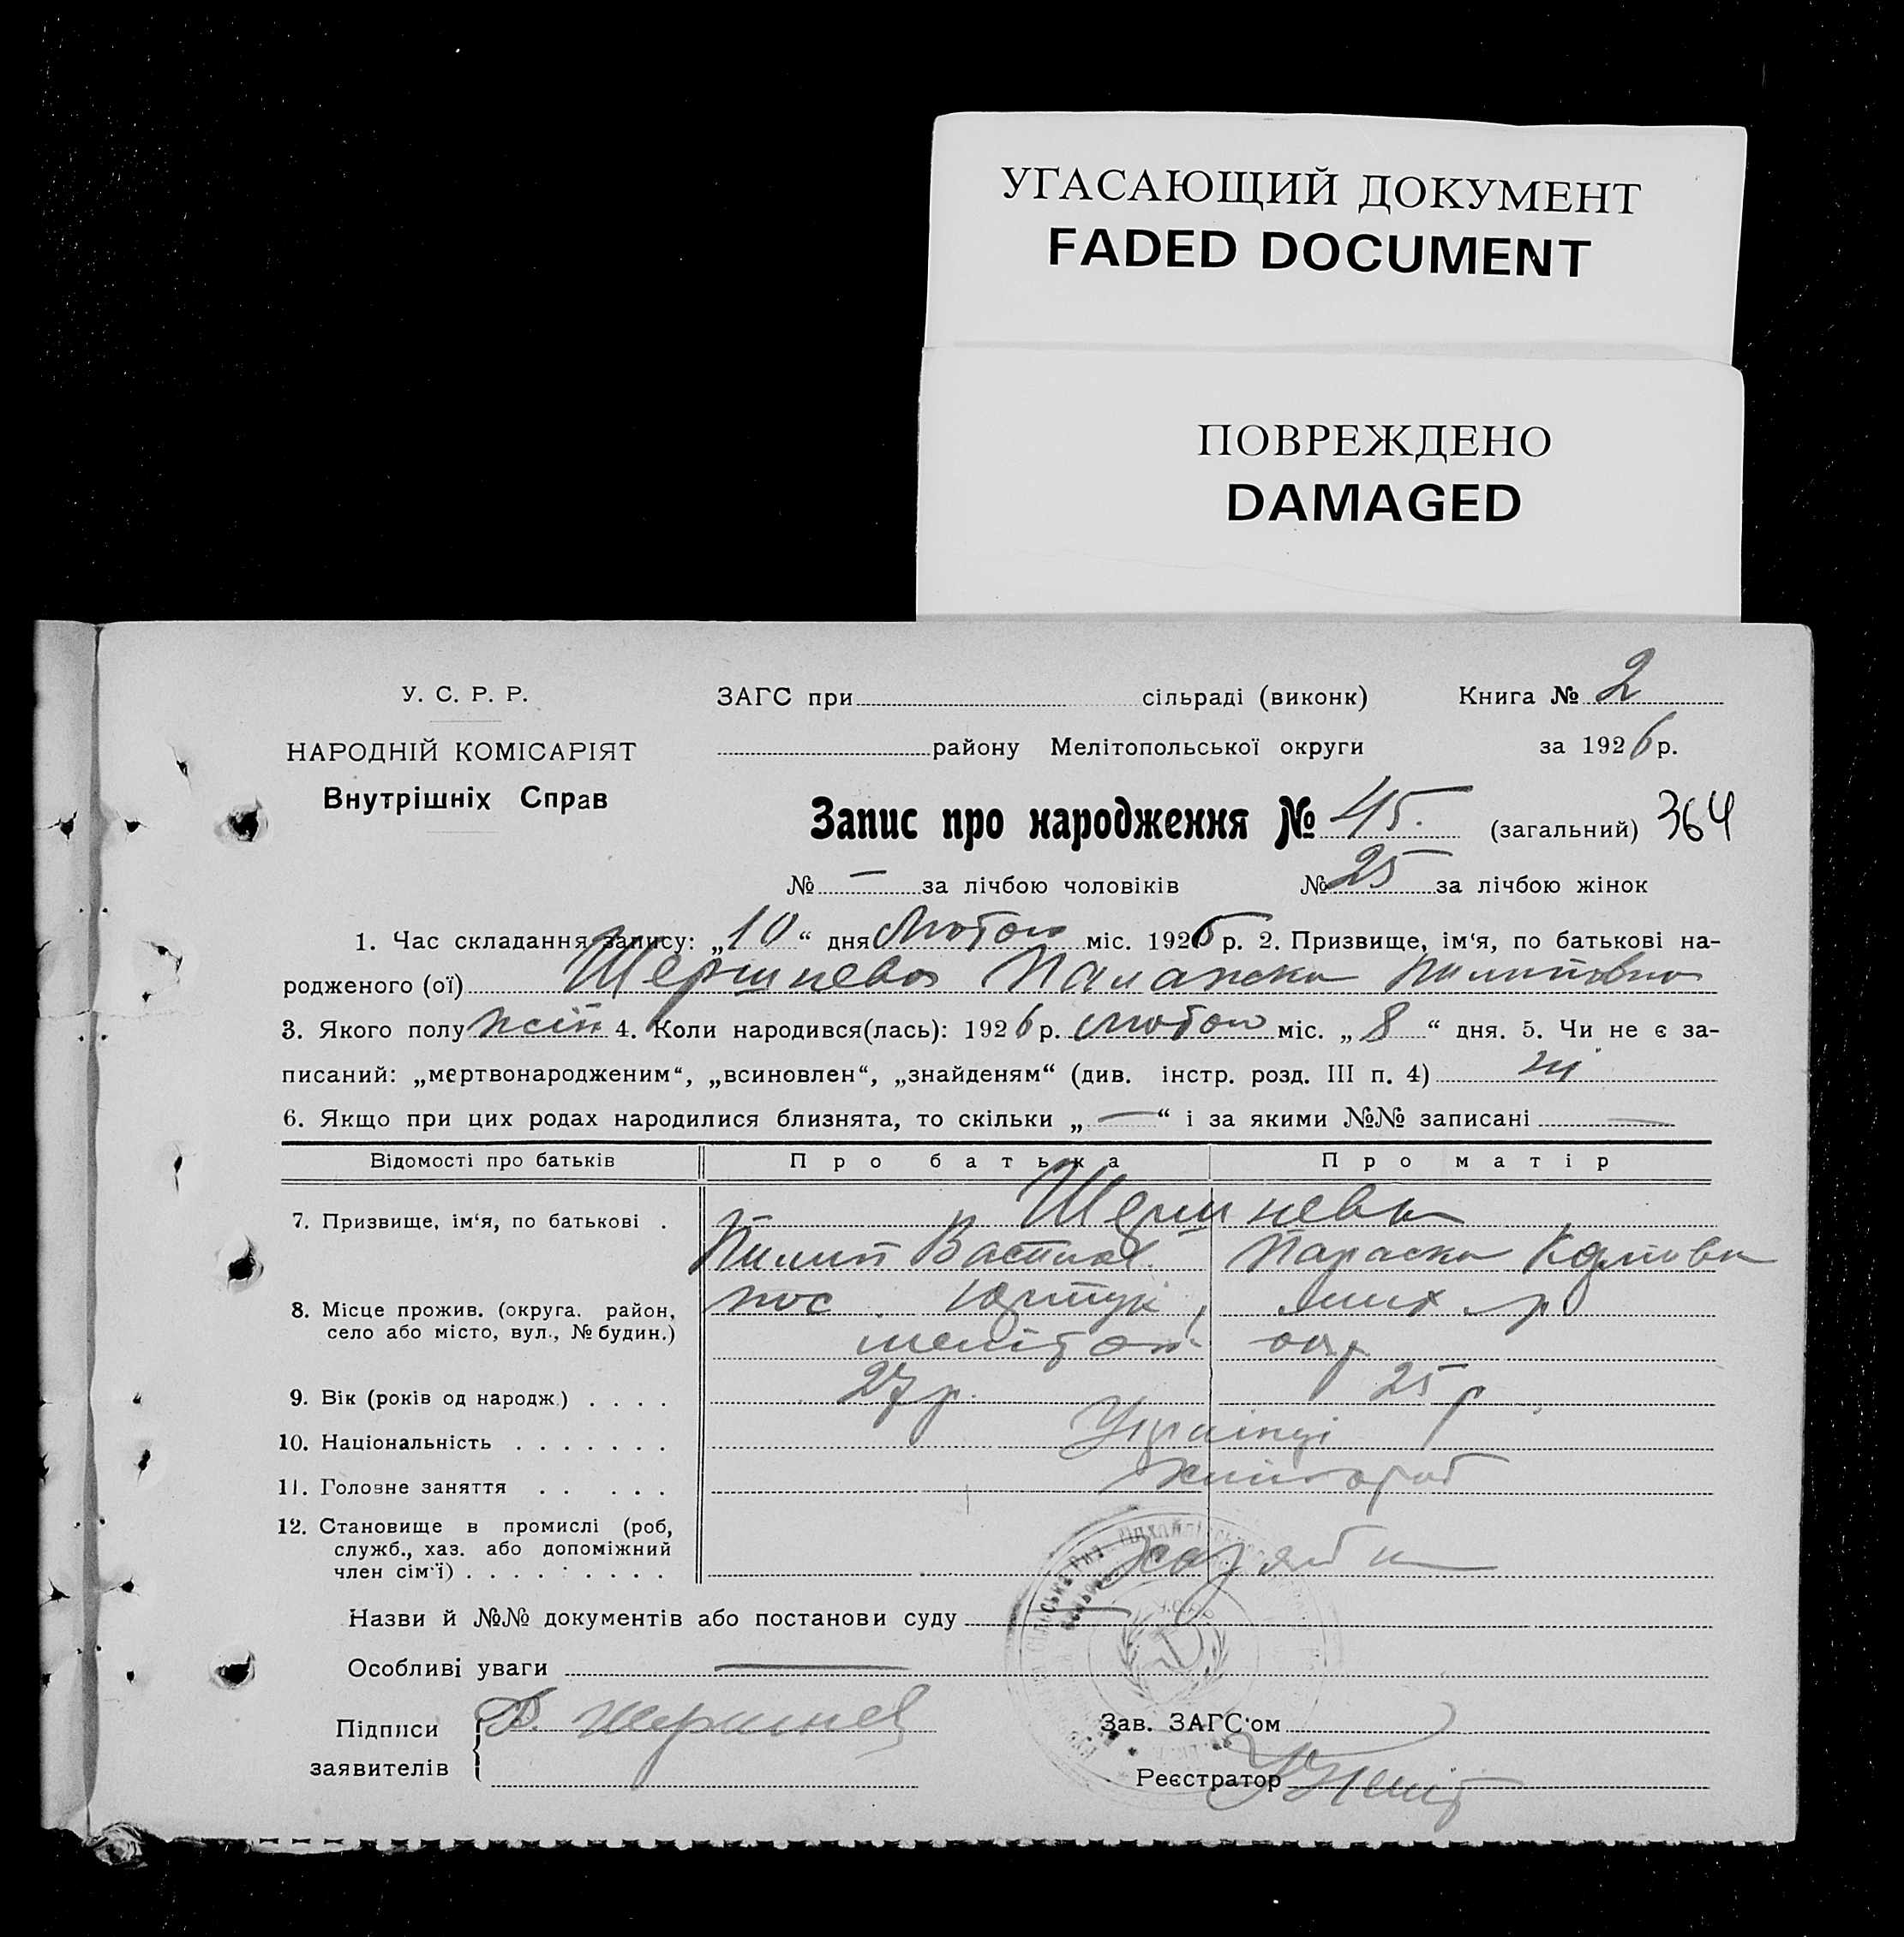 УГАСАЮЩИЙ ДОКУМЕНТ
FADED DOCUMENT
ПОВРЕЖДЕНО
DAMAGED
У. С. Р. Р.
НАРОДНІЙ КОМІСАРІЯТ
Внутрішніх Справ
ЗАГС при сільраді (виконк) Книга № 2
району Мелітопольської округи за 1926 р.
Запис про народження № 45. (загальний) 364
№ — за лічбою чоловіків № 25 за лічбою жінок
1. Час складання запису: „10“ дня Лютого міс. 1926 р. 2. Призвище, ім‘я, по батькові на-
родженого (ої) Палажка Пилиповна
3. Якого полу жін 4. Коли народився(лась): 1926 р. Лютого міс. „8“ дня. 5. Чи не є за-
писаний: „мертвонародженим“, „всиновлен“, „знайденям“ (див. інстр. розд. III п. 4) ні
6. Якщо при цих родах народилися близнята, то скільки „—“ і за якими №№ записані —
Відомості про батьків Про батька Про матір
7. Призвище, ім‘я, по батькові .
Пилип Васил. Параска Карповна
8. Місце прожив. (округа. район,
село або місто, вул., № будин.)
пос мих р
мелітоп окр
9. Вік (років од народж.) . . . . 27 р. 25 р.
10. Національність . . . . . . . Українці
11. Головне заняття . . . . . хлібороб
12. Становище в промислі (роб,
служб., хаз. або допоміжний
член сім‘ї) . . . . . . . . .
Назви й №№ документів або постанови суду —
Особливі уваги —
Підписи
заявителів
Зав. ЗАГС‘ом
Реєстратор